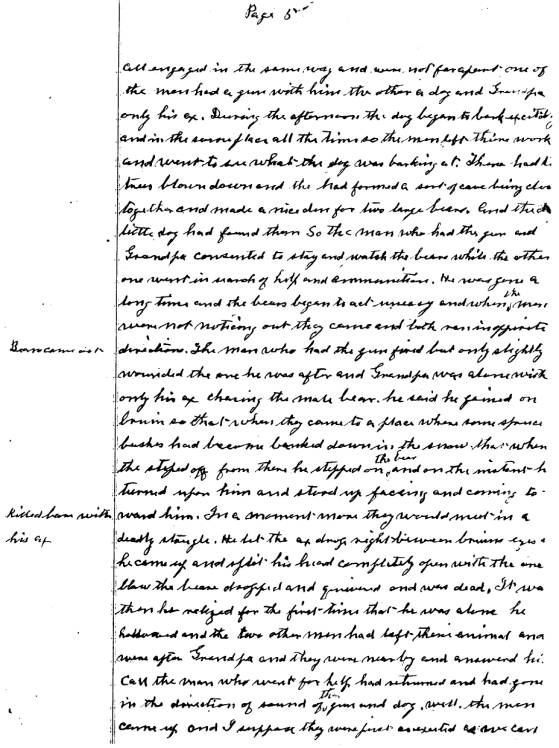 Page 5
all engaged in the same way and were not far apart one of
the men had a gun with him the other a dog and Grandpa
only his ax. During the afternoon the dog began to bark
and in the same place all the time so the men left there work
and went to see what the dog was barking at. There had
trees blown down and the had formed a sort of cave being
together and made a nice den for two large bears. And the
little dog had found them So the man who had the gun and
Grandpa consented to stay and watch the bears while the other
one went in search of help and ammunition. He was gone a
long time and the bears began to act uneasy and when the men
were not noticing out they came and both ran in opposite
Bears came out
direction. The man who had the gun fired but only slightly
wounded the one he was after and Grandpa was alone with
only his ax chasing the male bear. he said he gained on
bruin so that when they came to a place where some spruce
bushes had become banked down in the snow that when
the steped off from them he stepped on the bear and on the instant h
turned upon him and stood up facing and coming to-
Killed bear with
his ax
ward him. In a moment more they would meet in a
deadly stragle. He let the ax drop right between bruins eyes
he came up and split his head completely open with the one
blow the beare dropped and quivered and was dead. It wa
then he relized for the first time that he was alone he
hallowed and the two other men had left there animal and
were after Grandpa and they were near by and answered hi
Call the man who went for help had returned and had gone
in the direction of sound of the gun and dog. well. the men
came up and I suppose they were just as excited as we can